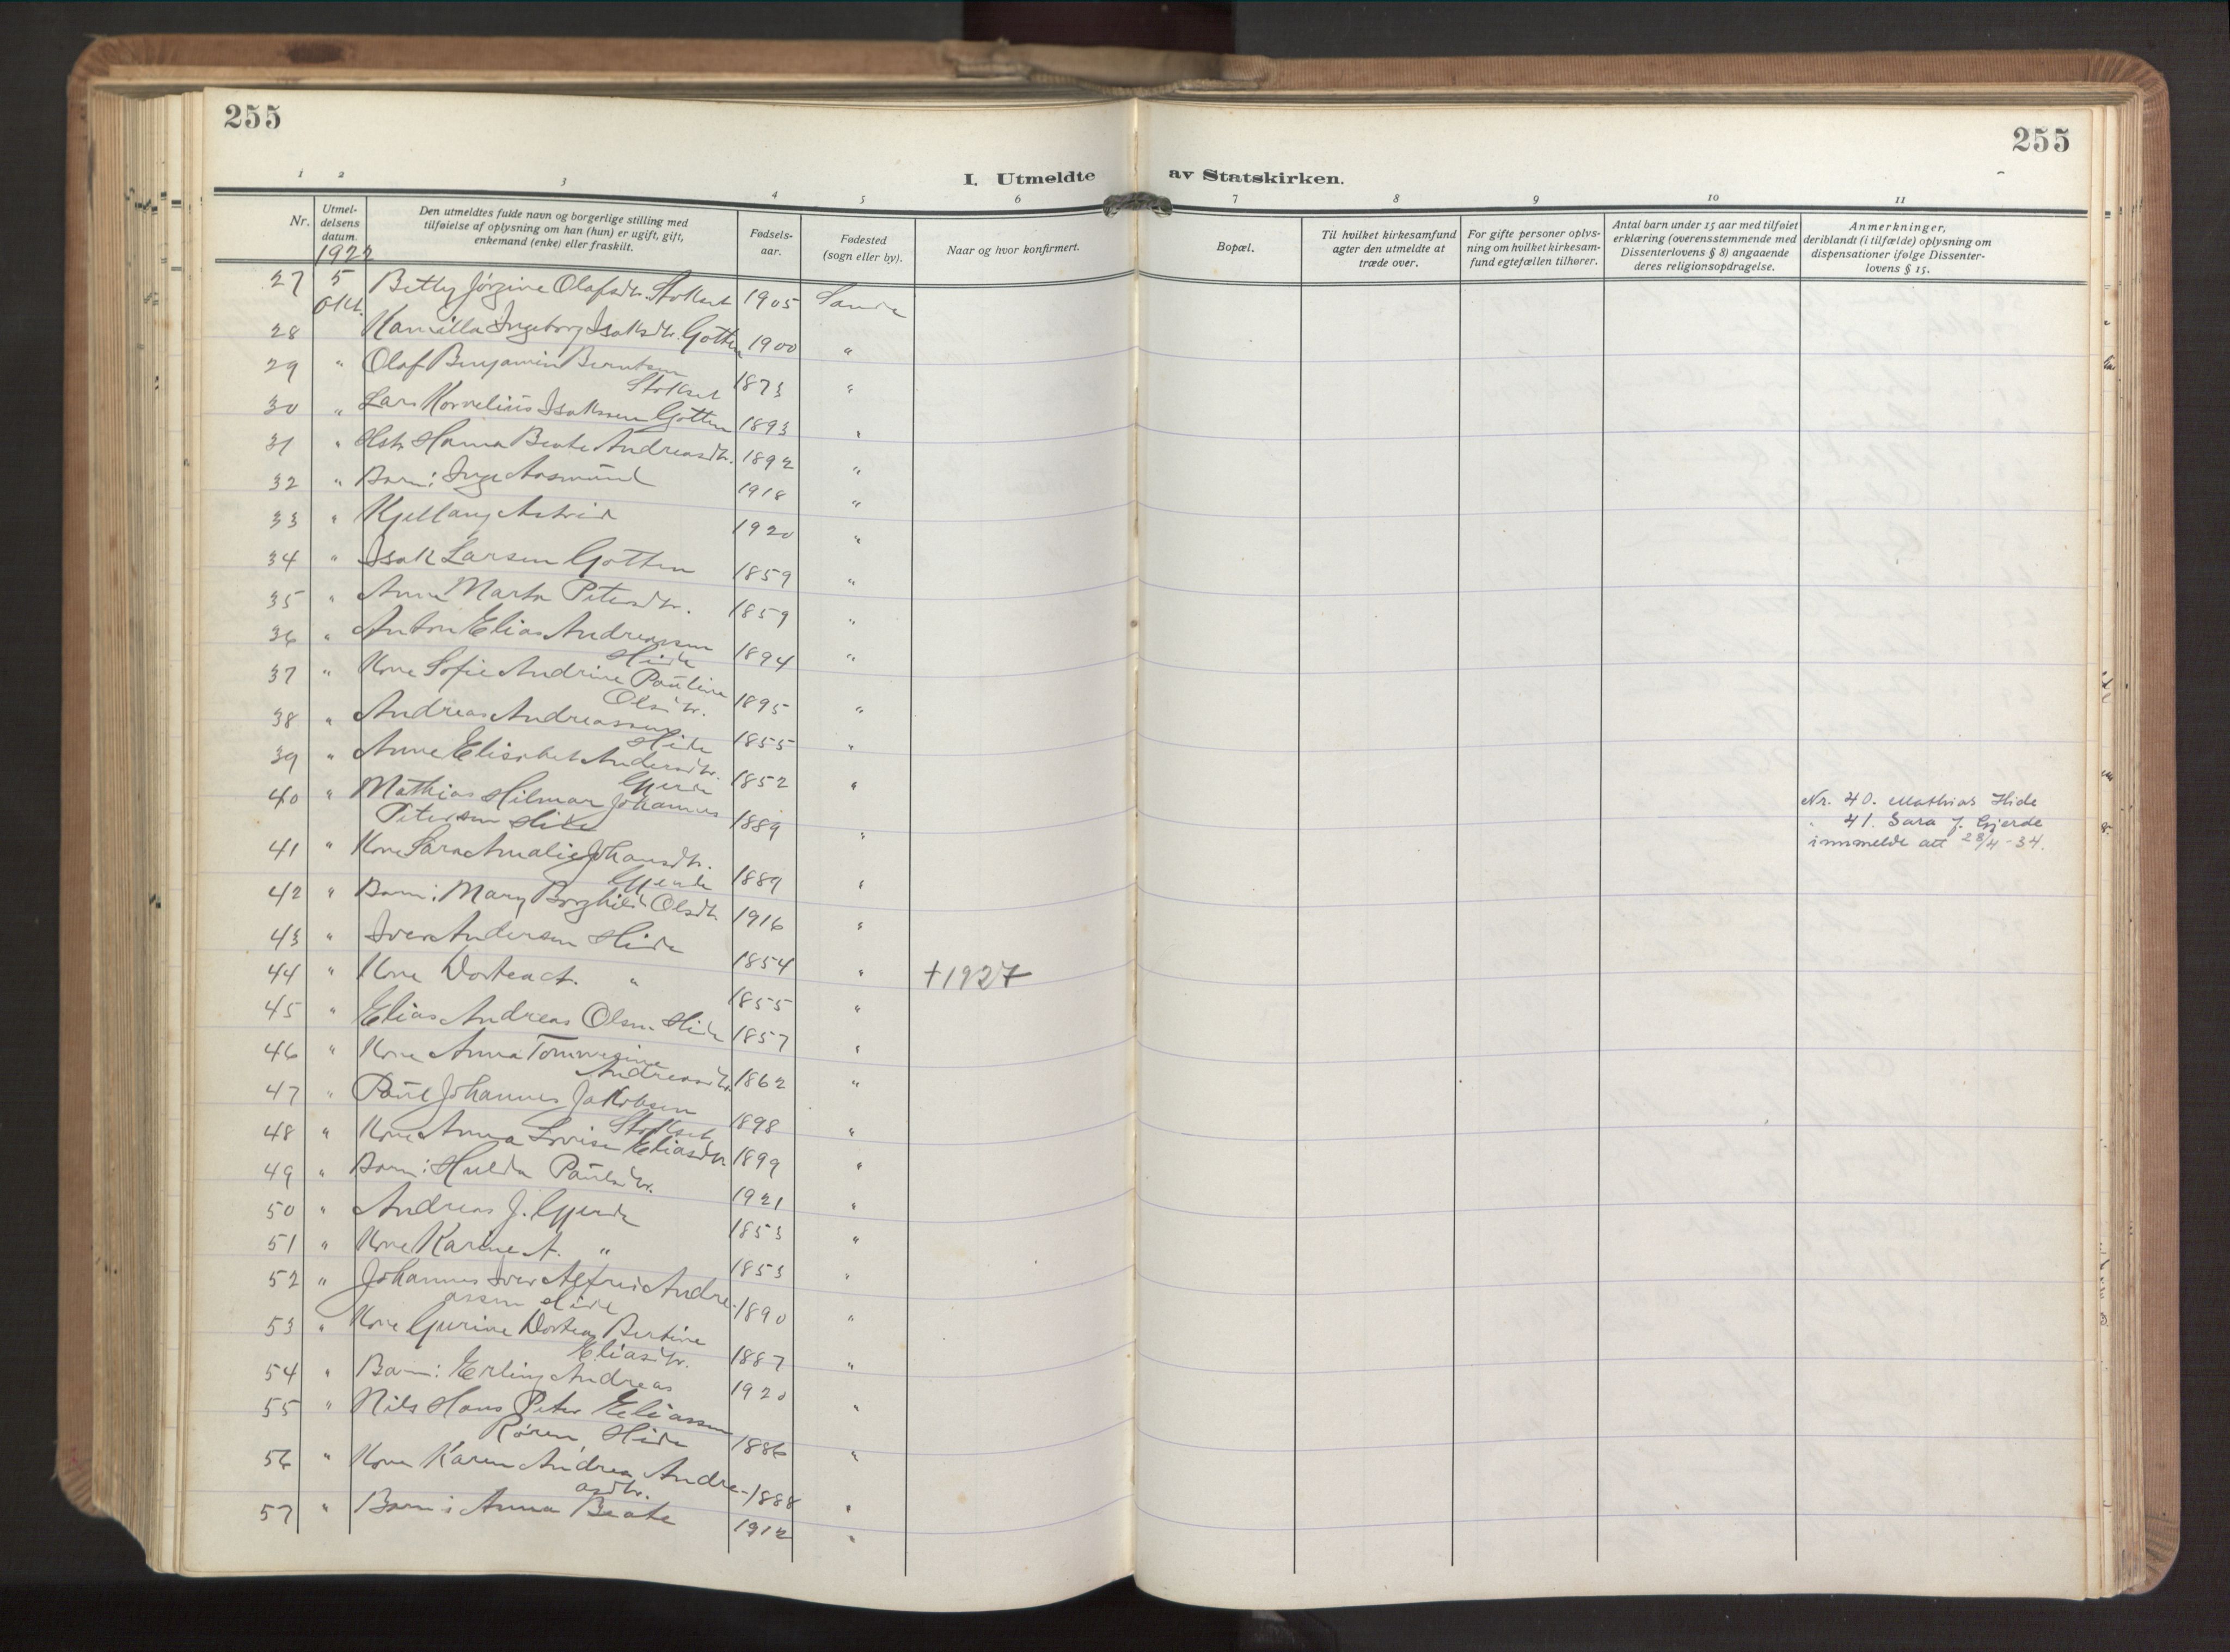 255
255
I. Utmeldte av Statskirken.
1 2 3 4 5 6 7 8 9 10 11
Nr.
Utmel-
delsens
datum.
1922
Den utmeldtes fulde navn og borgerlige stilling med
tilføielse af oplysning om han (hun) er ugift, gift,
enkemand (enke) eller fraskilt.
Fødsels-
aar.
Fødested
(sogn eller by).
Naar og hvor konfirmert.
Bopæl.
Til hvilket kirkesamfund
agter den utmeldte at
træde over.
For gifte personer oplys-
ning om hvilket kirkesam-
fund egtefællen tilhører.
Antal barn under 15 aar med tilføiet
erklæring (overensstemmende med
Dissenterlovens § 8) angaaende
deres religionsopdragelse.
Anmerkninger,
deriblandt (i tilfælde) oplysning om
dispensationer ifølge Dissenter-
lovens § 15.
27 5 Okt. Betty Jørgine Olafsdtr. Stokset 1905 Sande
28 Kamilla Ingeborg Isaksdtr. Gotten 1900 "
29 " Olaf Benjamin Berntsen
Stokset 1873 "
30 " Lars Kornelius Isaksen Gotten 1893 "
31 " Hstr Hanna Beate Andreasdtr. 1892 "
32 " Barn: Inge Aasmund 1918 "
33 " Kjellaug Astrid 1920 "
34 " Isak Larsen Gotten 1859 "
35 " Anne Marta Petersdtr. 1859 "
36 " Anton Elias Andreassen
Hide 1894 "
37 " Kone Sofie Andrine Pauline
Olsdtr. 1895 "
38 " Andreas Andreassen
Hide 1855 "
39 " Anne Elisabet Andersdtr.
Gjerde 1852 "
40 " Mathias Hilmar Johannes
Petersen Hide 1889 "
Nr. 40. Mathias Hide
" 41. Sara J. Gjerde
innmelde att 28/4-34.
41 " Kone Sara Amalie Johansdtr.
Gjerde 1889 "
42 " Barn: Mary Borghild Olsdtr. 1916 "
43 " Iver Andersen Hide 1854 "
44 " Kone Dortea A. " 1855 " +1927
45 " Elias Andreas Olsen Hide 1857 "
46 " Kone Anna Tommegine
Andreasdtr. 1862 "
47 " Paul Johannes Jakobsen
Stokset 1898 "
48 " Kone Anna Lovise Eliasdtr 1899 "
49 " Barn: Hulda Paulsdtr. 1921 "
50 " Andreas J. Gjerde 1853 "
51 " Kone Karine A. " 1853 "
52 " Johannes Iver Alfred Andre-
assen Hide 1890 "
53 " Kone Gurine Dortea Bertine
Eliasdtr. 1887 "
54 " Barn: Erling Andreas 1920 "
55 " Nils Hans Peter Eliassen
Røren, Hide 1886 "
56 " Kone Karen Andrea Andre-
asdtr. 1888 "
57 " Barn: Anna Beate 1912 "